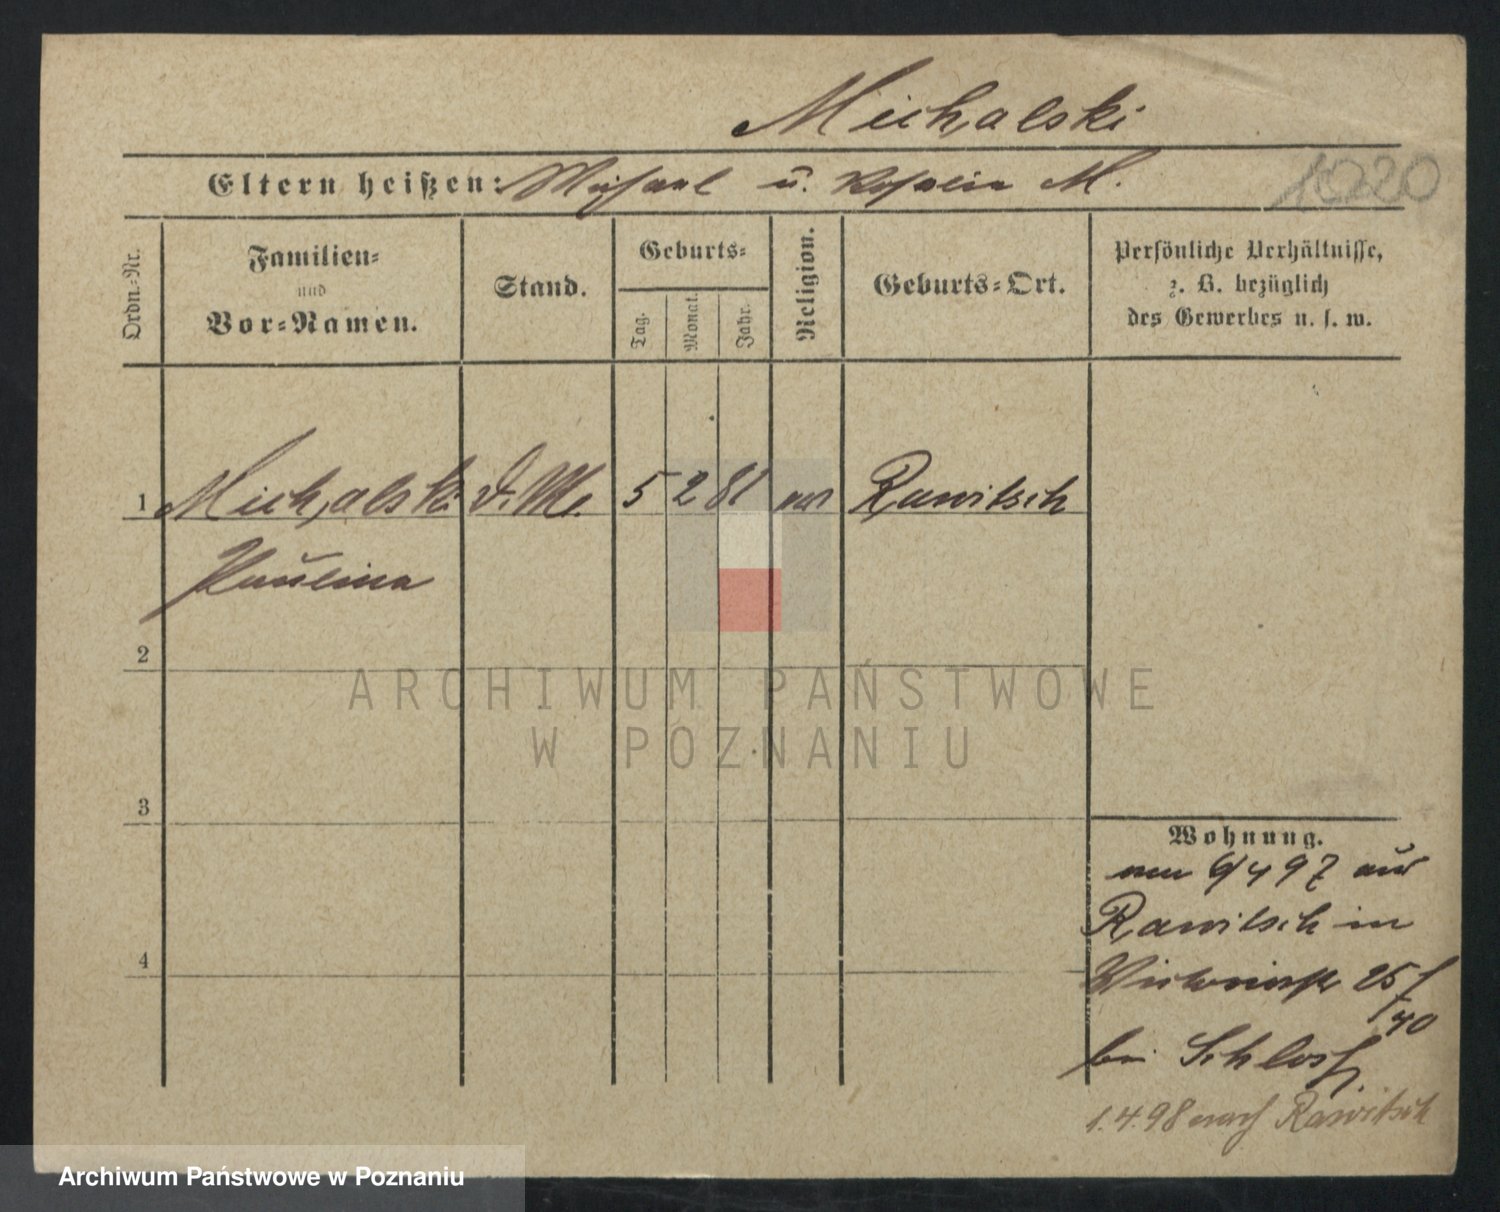 Michalski
Eltern heißen: Michael u. Rosalia M.
10220
Ordn.-Nr.
Familien-
und
Vor-Namen.
Stand.
Geburts-
Tag.
Monat.
Jahr.
Religion.
Geburts-Ort.
Persönliche Verhältnisse,
z. B. bezüglich
des Gewerbes u. s. w.
1 Michalski 5 2 81 Rawitsch
Paulina
2
3
4
ARCHIWUM PAŃSTWOWE
W POZNANIU
Wohnung.
6/4 97 aus
Rawitsch in
25
/40
bei Schloss
1.4.98 nach Rawitsch
Archiwum Państwowe w Poznaniu